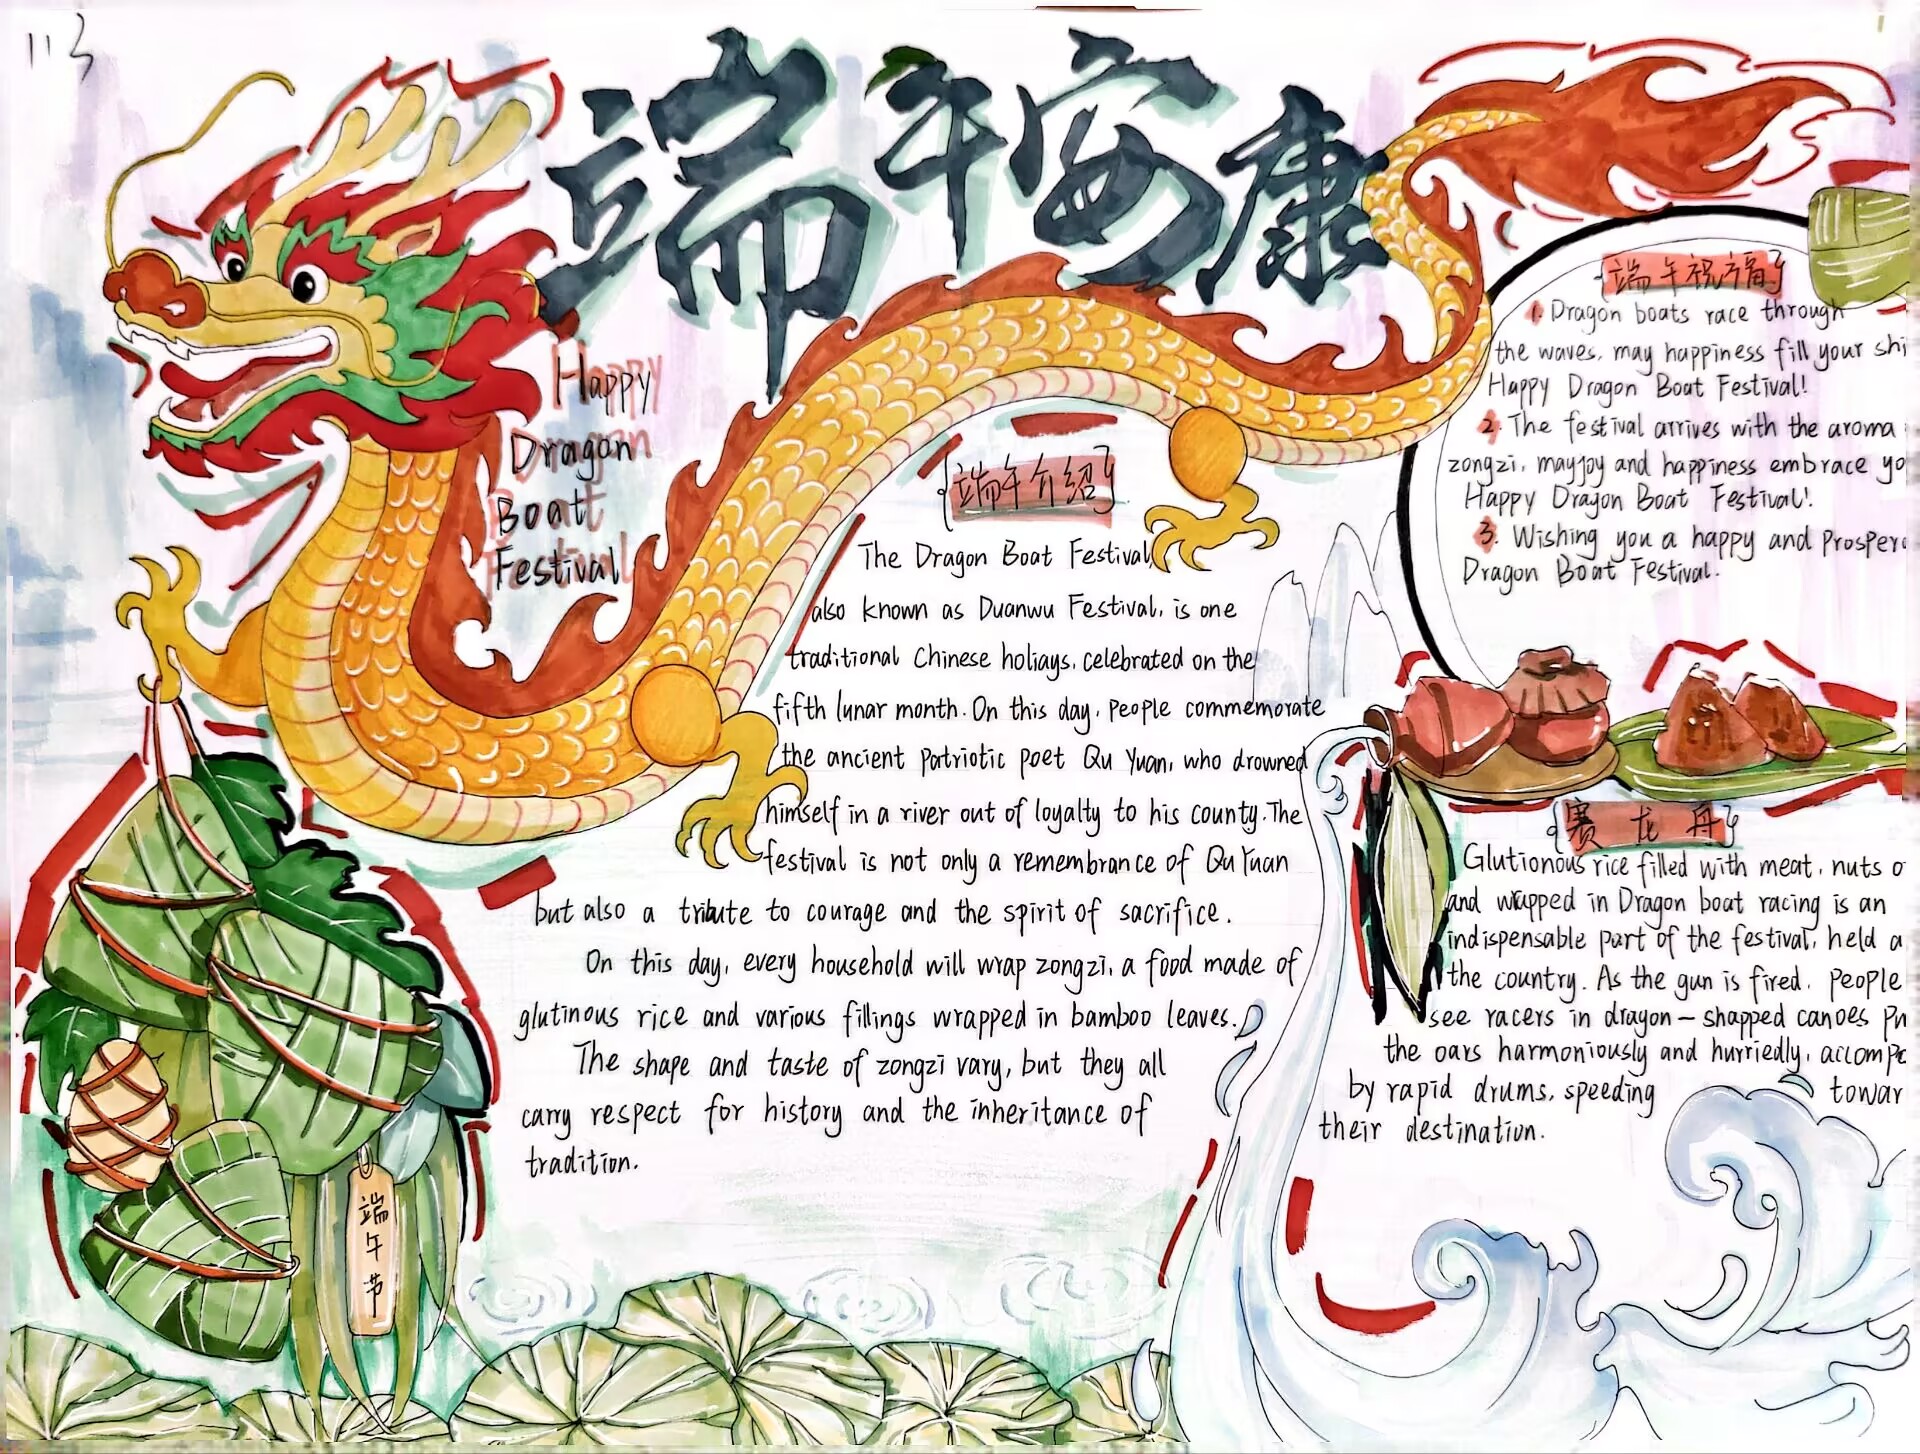 113
端午安康
Happy
Dragon
Boat
Festival
端午介绍
The Dragon Boat Festival,
also known as Duanwu Festival, is one
traditional Chinese holiays, celebrated on the
fifth lunar month. On this day, people commemorate
the ancient Patriotic poet Qu Yuan, who drowned
himself in a river out of loyalty to his county. The
festival is not only a remembrance of Qu Yuan
but also a tribute to courage and the spirit of sacrifice.
On this day, every household will wrap zongzi, a food made of
glutinous rice and various fillings wrapped in bamboo leaves.
The shape and taste of zongzi vary, but they all
carry respect for history and the inheritance of
tradition.
端午节
端午祝福
1. Dragon boats race through
the waves, may happiness fill your shi
Happy Dragon Boat Festival!
2. The festival arrives with the aroma
zongzi, may joy and happiness embrace yo
Happy Dragon Boat Festival!
3. Wishing you a happy and Prospero
Dragon Boat Festival.
赛龙舟
Glutionous rice filled with meat, nuts o
and wrapped in Dragon boat racing is an
indispensable part of the festival, held a
the country. As the gun is fired, people
see racers in dragon-shapped canoes
the oars harmoniously and hurriedly, accomp
by rapid drums, speeding towar
their destination.